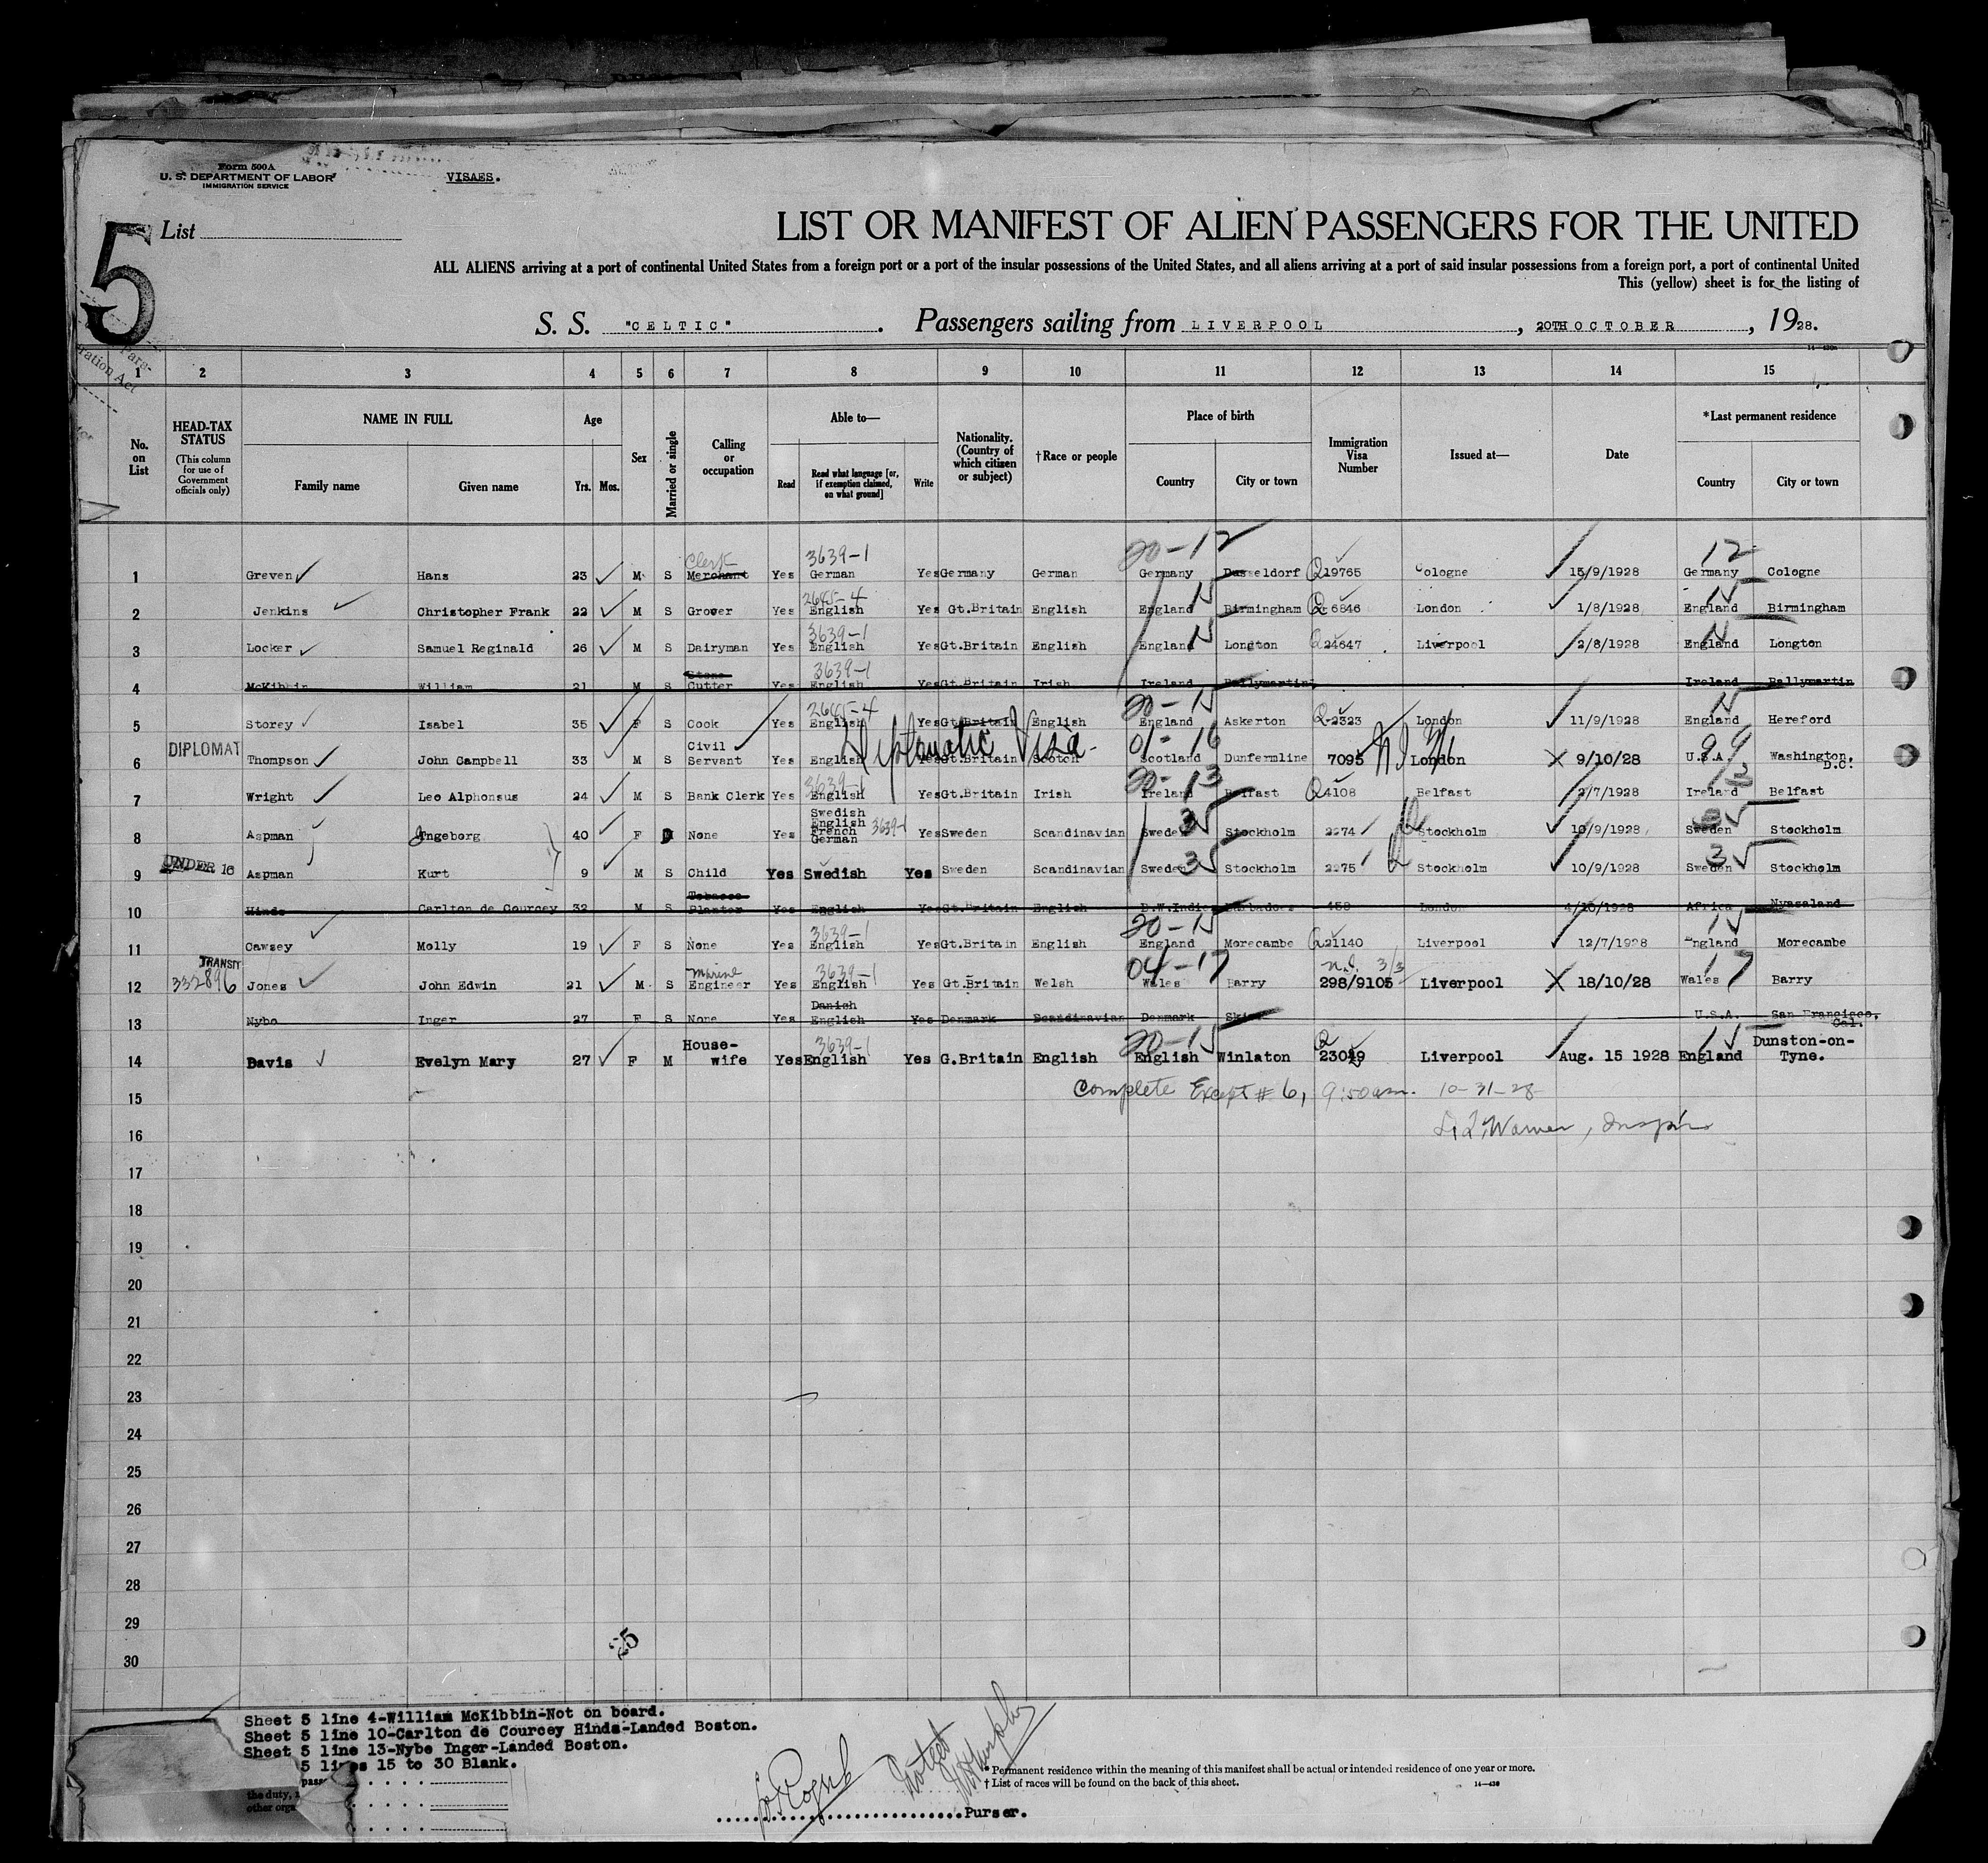 Form 500A
U. S. DEPARTMENT OF LABOR
IMMIGRATION SERVICE
VISAES.
5
List
LIST OR MANIFEST OF ALIEN PASSENGERS FOR THE UNITED
ALL ALIENS arriving at a port of continental United States from a foreign port or a port of the insular possessions of the United States, and all aliens arriving at a port of said insular possessions from a foreign port, a port of continental United
This (yellow) sheet is for the listing of
S. S. "CELTIC" . Passengers sailing from LIVERPOOL , 20TH OCTOBER , 1928.
1 2 3 4 5 6 7 8 9 10 11 12 13 14 15
No. on List
HEAD-TAX STATUS
(This column for use of Government officials only)
NAME IN FULL
Family name Given name
Age
Yrs. Mos.
Sex
Married or single
Calling or occupation
Able to—
Read
Read what language [or, if exemption claimed, on what ground]
Write
Nationality. (Country of which citizen or subject)
†Race or people
Place of birth
Country City or town
Immigration Visa Number
Issued at—
Date
*Last permanent residence
Country City or town
Clerk 3639-1 20-12 12
1 Greven Hans 23 M S Merchant Yes German Yes Germany German Germany Dusseldorf Q 19765 Cologne 15/9/1928 Germany Cologne
2645-4
2 Jenkins Christopher Frank 22 M S Grover Yes English Yes Gt.Britain English England Birmingham Q 6846 London 1/8/1928 England Birmingham
3639-1
3 Locker Samuel Reginald 26 M S Dairyman Yes English Yes Gt.Britain English England Longton Q 24647 Liverpool 2/8/1928 England Longton
3639-1
4 McKibbin William 21 M S Stone Cutter Yes English Yes Gt.Britain Irish Ireland Ballymartin Ireland Ballymartin
2645-4 20-15
5 Storey Isabel 35 F S Cook Yes English Yes Gt.Britain English England Askerton Q 2323 London 11/9/1928 England Hereford
Diplomatic Visa 01-16 99
6 DIPLOMAT Thompson John Campbell 33 M S Civil Servant Yes English Yes Gt.Britain Scotch Scotland Dunfermline 7095 London 9/10/28 U.S.A. Washington, D.C.
3639-1 20-13 13
7 Wright Leo Alphonsus 24 M S Bank Clerk Yes English Yes Gt.Britain Irish Ireland Belfast Q 4108 Belfast 2/7/1928 Ireland Belfast
8 Aspman Ingeborg 40 F None Yes Swedish English French German 3639-1 Yes Sweden Scandinavian Sweden Stockholm 2274 Q Stockholm 10/9/1928 Sweden Stockholm
9 UNDER 16 Aspman Kurt 9 M S Child Yes Swedish Yes Sweden Scandinavian Sweden Stockholm 2275 Q Stockholm 10/9/1928 Sweden Stockholm
10 Hinds Carlton de Courcey 32 M S Tobacco Planter Yes English Yes Gt.Britain English B.W.Indies Barbados 458 London 4/10/1928 Africa Nyasaland
3639-1 20-15 15
11 Cawsey Molly 19 F S None Yes English Yes Gt.Britain English England Morecambe Q 21140 Liverpool 12/7/1928 England Morecambe
TRANSIT 3639-1 04-17 3/3 17
12 332896 Jones John Edwin 21 M S Marine Engineer Yes English Yes Gt.Britain Welsh Wales Barry 298/9105 Liverpool 18/10/28 Wales Barry
13 Nybo Inger 27 F S None Yes Danish English Yes Denmark Scandinavian Denmark U.S.A. San Francisco, Cal.
3639-1 20-15 15
14 Davis Evelyn Mary 27 F M House-wife Yes English Yes G.Britain English English Winlaton Q 23049 Liverpool Aug. 15 1928 England Dunston-on-Tyne.
Complete Except #6, 9:50am. 10-31-28
15
Warner, Inspr
16
17
18
19
20
21
22
23
24
25
26
27
28
29
30
25
Sheet 5 line 4-William McKibbin-Not on board.
Sheet 5 line 10-Carlton de Courcey Hinds-Landed Boston.
Sheet 5 line 13-Nybe Inger-Landed Boston.
5 lines 15 to 30 Blank.
the duty,
other orga
* Permanent residence within the meaning of this manifest shall be actual or intended residence of one year or more.
† List of races will be found on the back of this sheet.
14—430
Purser.